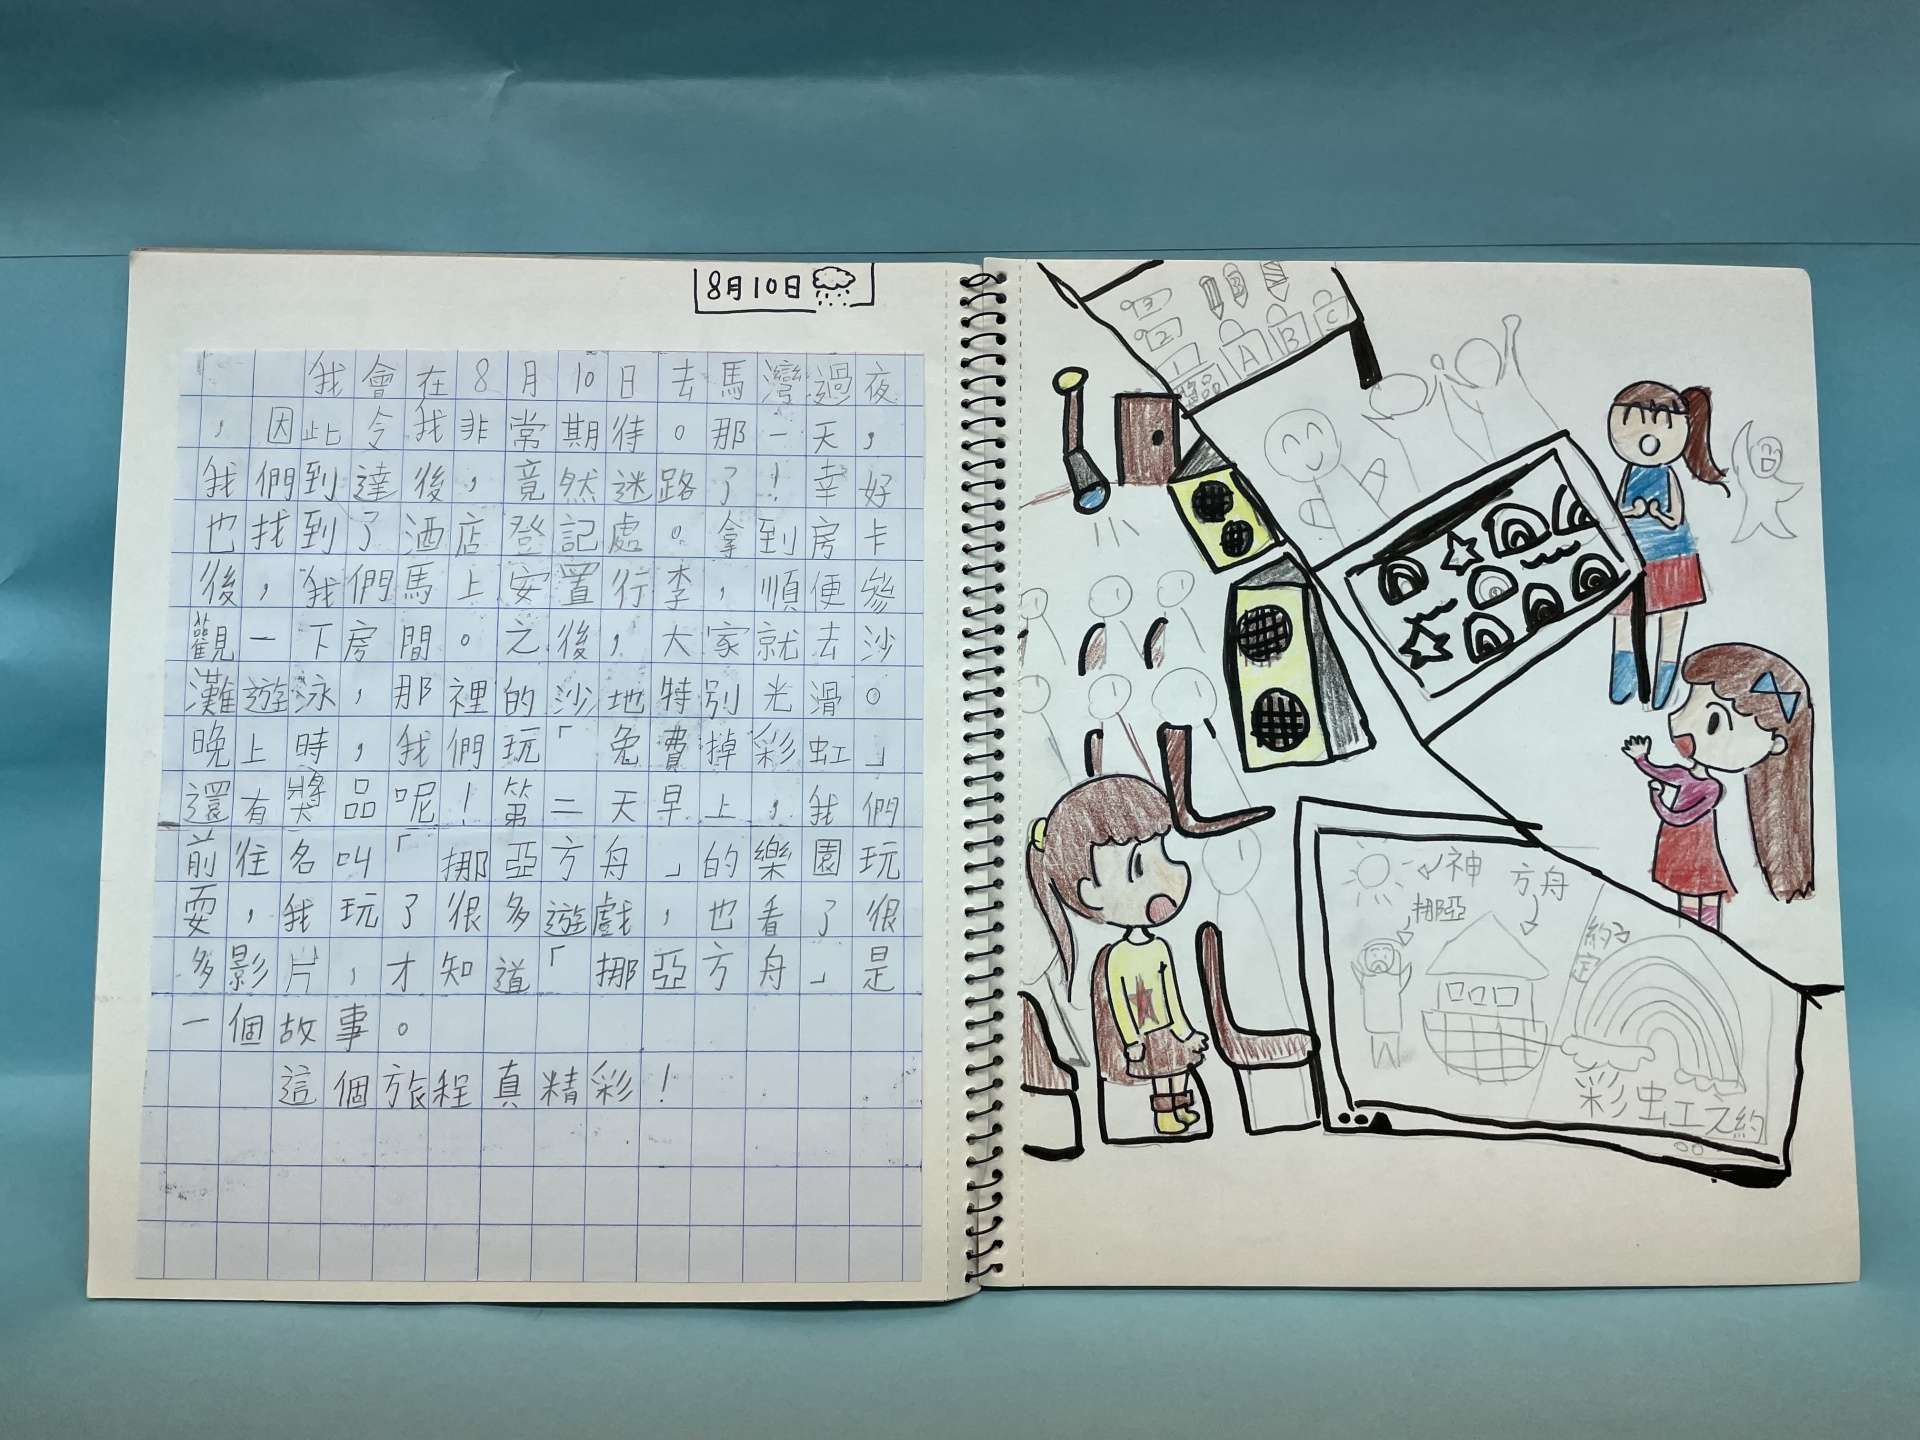 8月10日
我會在8月10日去馬灣過夜
，因此令我非常期待。那一天，
我們到達後，竟然迷路了！幸好
也找到了酒店登記處。拿到房卡
後，我們馬上安置行李，順便參
觀一下房間。之後，大家就去沙
灘遊泳，那裡的沙地特別光滑。
晚上時，我們玩「免費掉彩虹」
還有獎品呢！第二天早上，我們
前往名叫「挪亞方舟」的樂園玩
耍，我玩了很多遊戲，也看了很
多影片，才知道「挪亞方舟」是
一個故事。
這個旅程真精彩！
A B C
獎品
神
方舟
挪亞
約定
彩虹之約